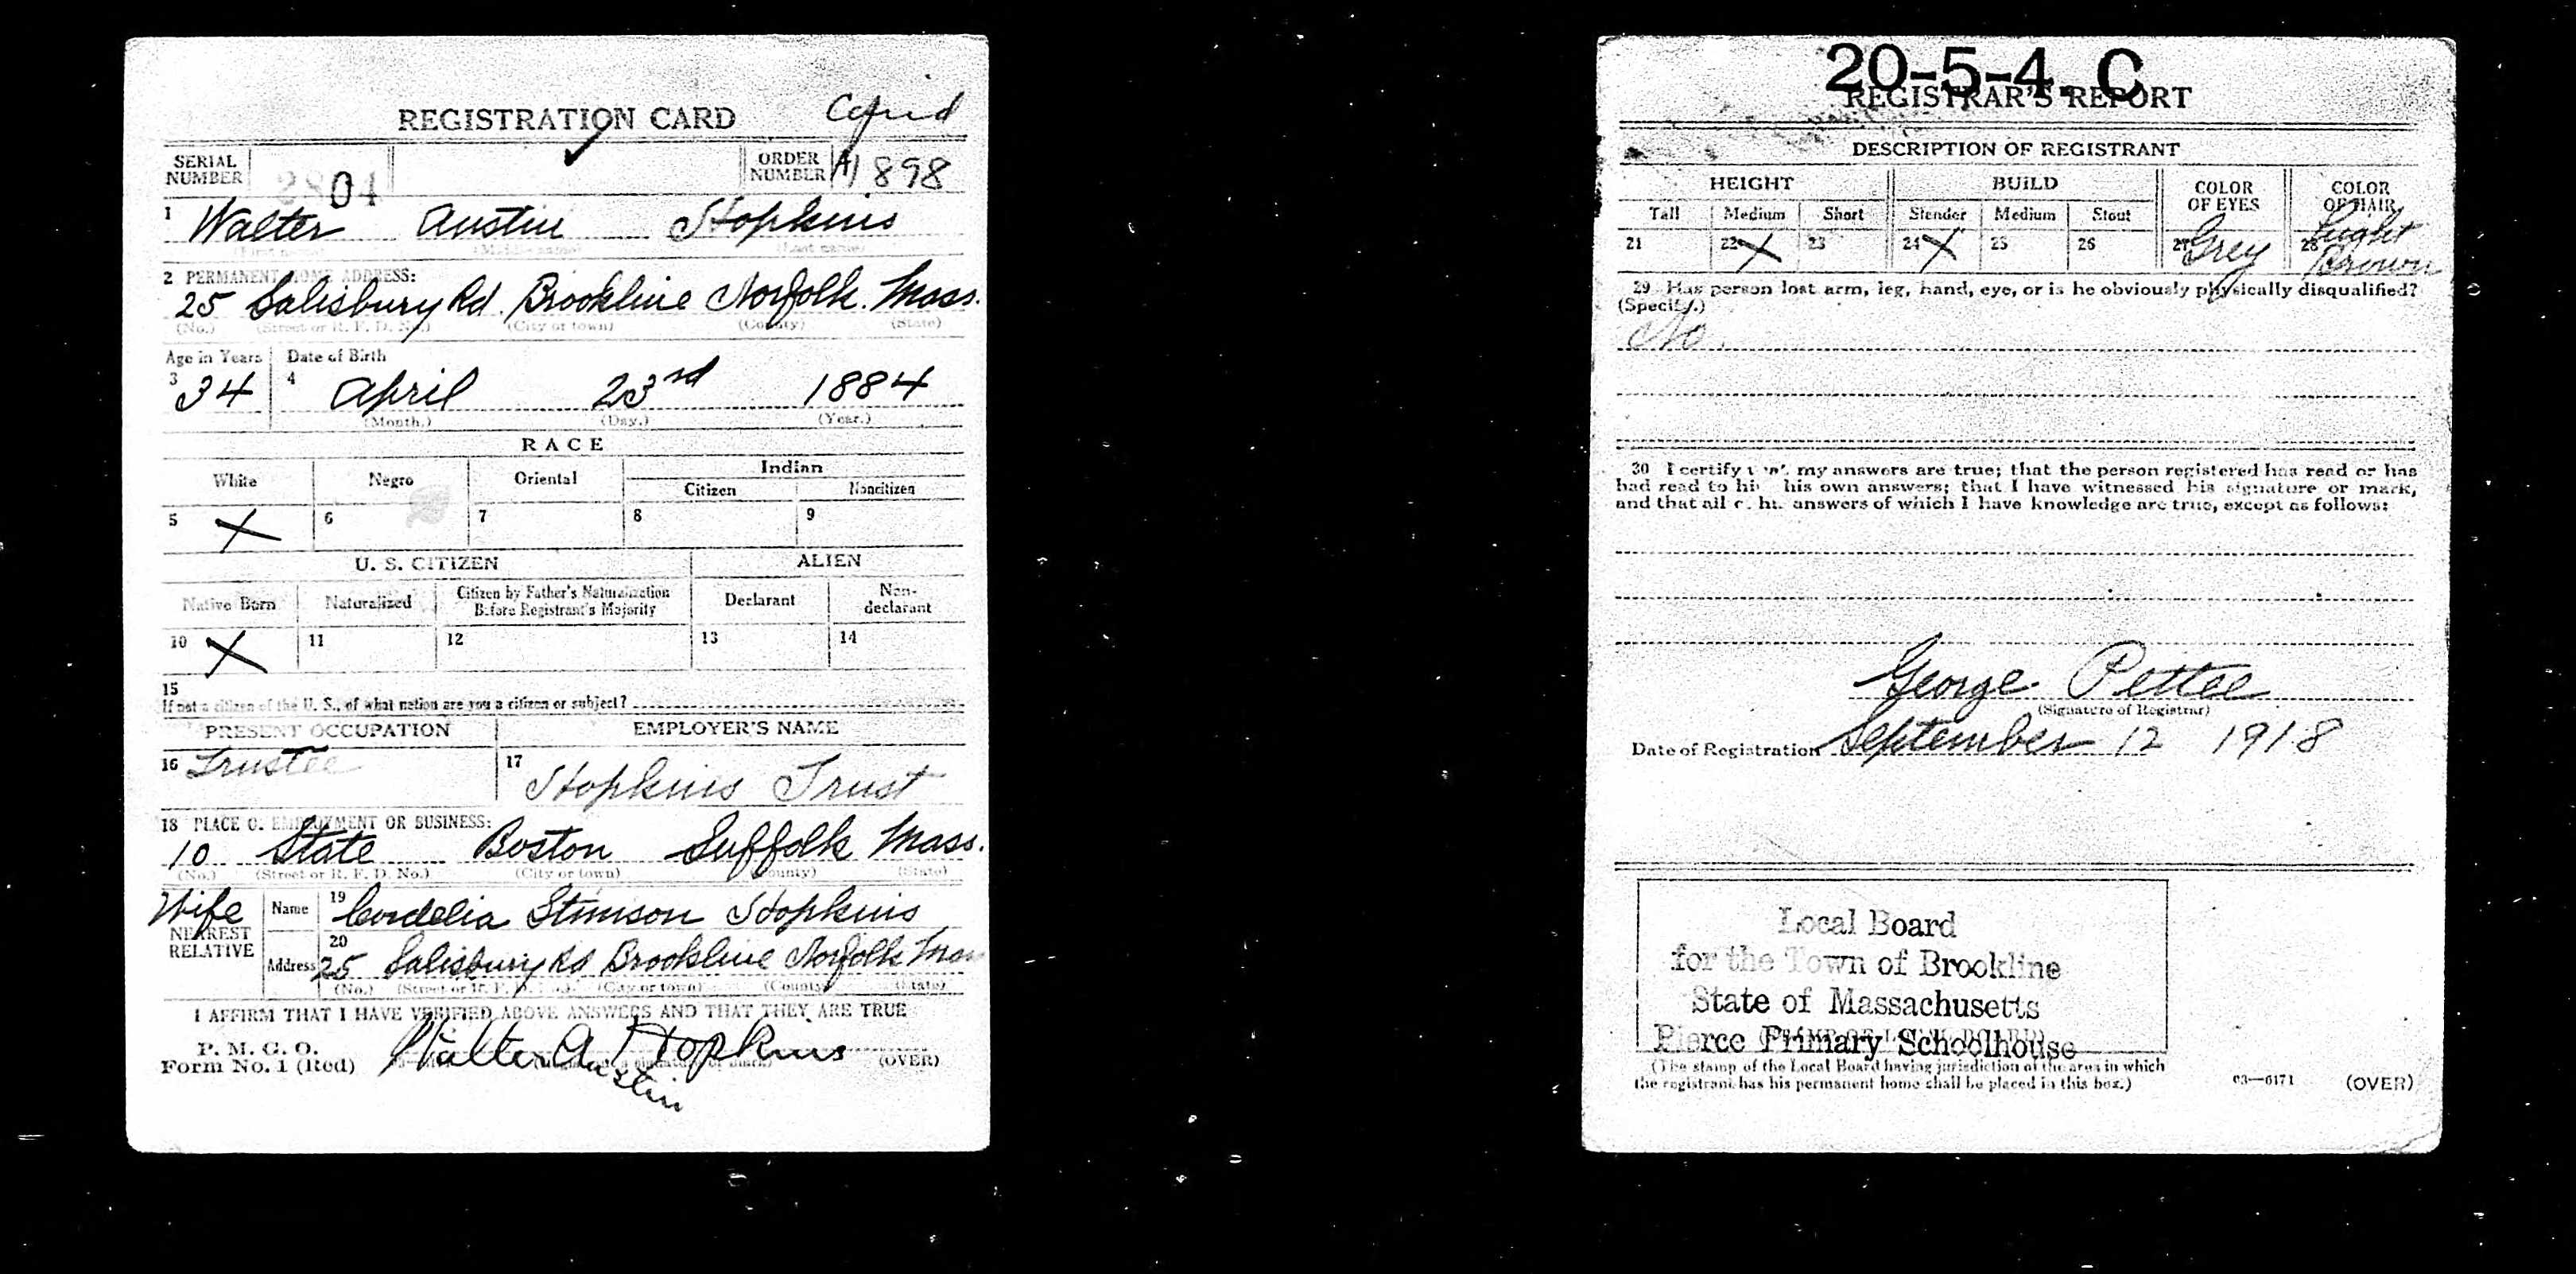 REGISTRATION CARD
SERIAL NUMBER 2804 ORDER NUMBER A1898
1 Walter Austin Hopkins
2 PERMANENT HOME ADDRESS:
25 Salisbury Rd. Brookline Norfolk. Mass.
(No.) (Street or R. F. D. No.) (City or town) (County) (State)
Age in Years Date of Birth
3 34 4 April 23rd 1884
(Month.) (Day.) (Year.)
RACE
White Negro Oriental Indian
Citizen Noncitizen
5 X 6 7 8 9
U. S. CITIZEN ALIEN
Native Born Naturalized Citizen by Father's Naturalization Before Registrant's Majority Declarant Non-declarant
10 X 11 12 13 14
15
If not a citizen of the U. S., of what nation are you a citizen or subject?
PRESENT OCCUPATION EMPLOYER'S NAME
16 Trustee 17 Hopkins Trust
18 PLACE OF EMPLOYMENT OR BUSINESS:
10 State Boston Suffolk Mass.
(No.) (Street or R. F. D. No.) (City or town) (County) (State)
Wife Name 19 Cordelia Stimson Hopkins
NEAREST RELATIVE
Address 20 25 Salisbury Rd Brookline Norfolk Mass
(No.) (Street or R. F. D. No.) (City or town) (County) (State)
I AFFIRM THAT I HAVE VERIFIED ABOVE ANSWERS AND THAT THEY ARE TRUE
P. M. G. O.
Form No. 1 (Red) Walter A. Hopkins (OVER)
Austin
20-5-4. C
REGISTRAR'S REPORT
DESCRIPTION OF REGISTRANT
HEIGHT BUILD COLOR OF EYES COLOR OF HAIR
Tall Medium Short Slender Medium Stout
21 22 X 23 24 X 25 26 27 Grey 28 Light Brown
29 Has person lost arm, leg, hand, eye, or is he obviously physically disqualified?
(Specify.)
No.
30 I certify that my answers are true; that the person registered has read or has
had read to him his own answers; that I have witnessed his signature or mark,
and that all of his answers of which I have knowledge are true, except as follows:
George Pettee
(Signature of Registrar)
Date of Registration September 12 1918
Local Board
for the Town of Brookline
State of Massachusetts
Pierce Primary Schoolhouse
(The stamp of the Local Board having jurisdiction of the area in which
the registrant has his permanent home shall be placed in this box.)
03—6171 (OVER)